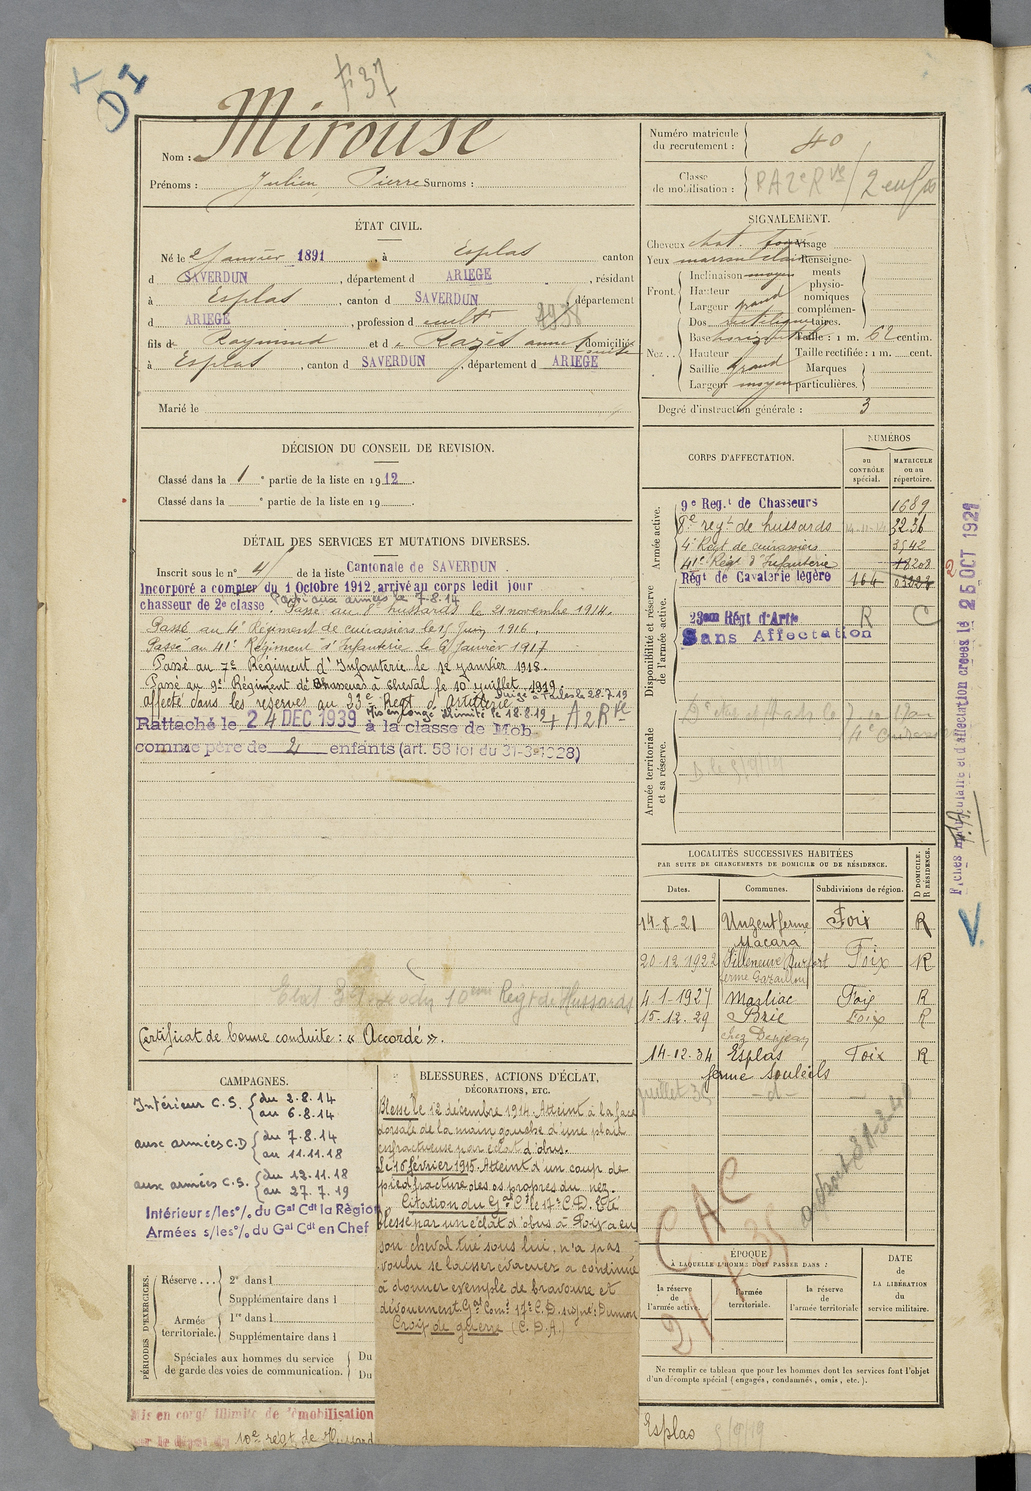 F 37
D 1
Nom : Mirouse
Prénoms : Julien, Pierre Surnoms :
ÉTAT CIVIL.
Né le 2 Janvier 1891, à Esplas canton
d SAVERDUN, département d ARIEGE, résidant
à Esplas, canton d SAVERDUN, département
d ARIEGE, profession d cultr
fils de Raymond et de Razès anne domiciliés
à Esplas, canton d SAVERDUN, département d ARIEGE
Marié le
DÉCISION DU CONSEIL DE REVISION.
Classé dans la 1 e partie de la liste en 1912.
Classé dans la e partie de la liste en 19
DÉTAIL DES SERVICES ET MUTATIONS DIVERSES.
Inscrit sous le n° 4 de la liste Cantonale de SAVERDUN.
Incorporé a compter du 1 Octobre 1912, arrivé au corps ledit jour
chasseur de 2e classe Parti aux armées le 7-8.14
Passé au 8e hussards le 21 novembre 1914.
Passé au 4e Régiment de cuirassiers le 15 Juin 1916.
Passé au 41e Régiment d'Infanterie le 9 Janvier 1917
Passé au 7e Régiment d'Infanterie le 1e janvier 1918.
Passé au 9e Régiment de Chasseurs à cheval le 10 juillet 1919
affecté dans les réserves au 23e Régt d'Artillerie
Mis en congé illimité le 18.8.19
+ A2Rve
Rattaché le 24 DEC 1939 à la classe de Mob
comme père de 2 enfants (art. 58 loi du 31-3-1928)
10eme Regt de Hussards
Certificat de bonne conduite : « Accordé ».
CAMPAGNES.
Intérieur C.S. { du 2.8.14
au 6.8.14
aux armées C.D { du 7.8.14
au 11.11.18
aux armées C.S. { du 12.11.18
au 27.7.19
Intérieur s/les % du Gal Cdt la Région
Armées s/les % du Gal Cdt en Chef
BLESSURES, ACTIONS D'ÉCLAT,
DÉCORATIONS, ETC.
Blessé le 12 décembre 1914. Atteint à la face
dorsale de la main gauche d'une plaie
enfractueuse par éclat d'obus.
Le 16 février 1915. Atteint d'un coup de
pied fracture des os propres du nez.
Citation du Gal Ct le 17e C.D. Eté
blessé par un éclat d'obus à Foisy a eu
son cheval tué sous lui, n'a pas
voulu se laisser évacuer a continué
à donner exemple de bravoure et
dévouement. Gal Comt 17e C.D. signé : Dumon
Croix de guerre (C.D.A.)
PÉRIODES D'EXERCICES.
Réserve . . . { 2e dans l
Supplémentaire dans l
Armée territoriale. { 1re dans l
Supplémentaire dans l
Spéciales aux hommes du service
de garde des voies de communication. { Du
Du
Mis en congé illimité de démobilisation
10e régt de Hussards
Numéro matricule
du recrutement : 40
Classe
de mobilisation : 2 enfts
SIGNALEMENT.
Cheveux chat. Visage
Yeux marron clair Renseigne-
Front. { Inclinaison moyen ments
Hauteur physio-
Largeur grand nomiques
complémen-
Nez . . { Dos rectiligne taires.
Base horizontale Taille : 1 m. 62 centim.
Hauteur Taille rectifiée : 1 m. cent.
Saillie grand Marques
Largeur moyen particulières.
Degré d'instruction générale : 3
CORPS D'AFFECTATION.
NUMÉROS
au
CONTRÔLE
spécial.
MATRICULE
ou au
répertoire.
Armée active.
9e Reg.t de Chasseurs 1689
8e regt de hussards 3236
4e Régt de cuirassiers 3942
41e Régt d'Infanterie 18208
Régt de Cavalerie légère 164
Disponibilité et réserve
de l'armée active.
23eme Régt d'Artie R C
Sans Affectation
Armée territoriale
et sa réserve.
LOCALITÉS SUCCESSIVES HABITÉES
PAR SUITE DE CHANGEMENTS DE DOMICILE OU DE RÉSIDENCE.
Dates. Communes. Subdivisions de région. D DOMICILE. R RÉSIDENCE.
14-8-21 Unzent ferme Foix R
Macara
20-12 1922 Villeneuve Durfort Foix R
4-1-1927 Mazliac Foix R
15-12.29 Brie Foix R
14-12-34 Esplas Foix R
ferme Souleils
juillet 35 -d-
CAC
ÉPOQUE
À LAQUELLE L'HOMME DOIT PASSER DANS :
la réserve
de
l'armée active
l'armée
territoriale.
la réserve
de
l'armée territoriale
DATE
de
LA LIBÉRATION
du
service militaire.
Ne remplir ce tableau que pour les hommes dont les services font l'objet
d'un décompte spécial (engagés, condamnés, omis, etc.).
Esplas 5/9/19
Fiches matriculaire et d'affectation créées le 25 OCT 1921